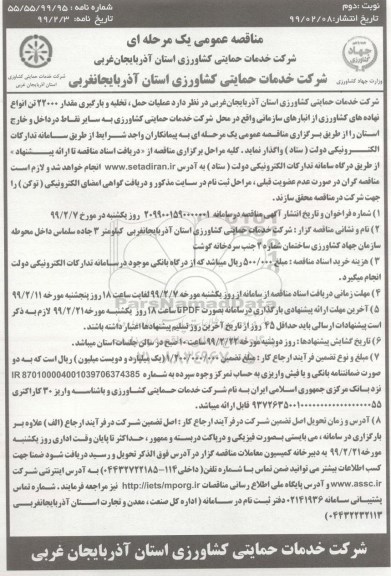 نوبت: دوم
تاریخ انتشار: ۹۹/۰۲/۰۸
شماره نامه: ۵۵/۵۵/۹۹/۹۵
تاریخ نامه: ۹۹/۲/۳
مناقصه عمومی یک مرحله ای
شرکت خدمات حمایتی کشاورزی استان آذربایجان‌غربی
شرکت خدمات حمایتی کشاورزی استان آذربایجانغربی
وزارت جهاد کشاورزی
شرکت خدمات حمایتی کشاورزی استان آذربایجان‌غربی در نظر دارد عملیات حمل، تخلیه و بارگیری مقدار ۲۲۰۰۰ تن انواع
نهاده های کشاورزی از انبارهای سازمانی واقع در محل شرکت خدمات حمایتی کشاورزی به سایر نقاط در داخل و خارج
استان را از طریق برگزاری مناقصه عمومی یک مرحله ای به پیمانکاران واجد شرایط از طریق سامانه تدارکات
الکترونیکی دولت (ستاد) واگذار نماید. کلیه مراحل برگزاری مناقصه از «دریافت اسناد مناقصه تا ارائه پیشنهاد»
از طریق درگاه سامانه تدارکات الکترونیکی دولت (ستاد) به آدرس www.setadiran.ir انجام خواهد شد و لازم است
مناقصه گران در صورت عدم عضویت قبلی، مراحل ثبت نام در سایت مذکور و دریافت گواهی امضای الکترونیکی (توکن) را
جهت شرکت در مناقصه محقق سازند.
۱) شماره فراخوان و تاریخ انتشار آگهی مناقصه در سامانه ۲۰۹۹۰۰۱۵۹۰۰۰۰۰۰۱ روز یکشنبه در مورخ ۹۹/۲/۷
۲) نام و نشانی مناقصه گزار: شرکت خدمات حمایتی کشاورزی آذربایجانغربی کیلومتر ۳ جاده سلماس داخل محوطه
سازمان جهاد کشاورزی ساختمان شماره ۲ جنب سردخانه گوشت
۳) هزینه خرید اسناد مناقصه: مبلغ ۵۰۰/۰۰۰ ریال میباشد که از درگاه بانکی موجود در سامانه تدارکات الکترونیکی دولت
انجام میگیرد.
۴) مهلت زمانی دریافت اسناد مناقصه از سامانه از روز یکشنبه مورخه ۹۹/۲/۷ لغایت ساعت ۱۸ روز پنجشنبه مورخه ۹۹/۲/۱۱
۵) آخرین مهلت ارائه پیشنهادی بارگذاری در سامانه بصورت PDF تا ساعت ۱۸ روز یکشنبه مورخه ۹۹/۲/۲۱ لازم به ذکر
است پیشنهادات ارسالی باید حداقل ۴۵ روز از تاریخ آخرین روز تسلیم پیشنهادها اعتبار داشته باشند.
۶) تاریخ گشایش پیشنهادها: روز دوشنبه مورخه ۹۹/۲/۲۲ ساعت ۱۰ صبح در سالن جلسات استان میباشد.
۷) مبلغ و نوع تضمین فرآیند ارجاع کار: مبلغ تضمین ۱/۲۰۰/۰۰۰/۰۰۰ (یک میلیارد و دویست میلیون) ریال است که به دو
صورت ضمانتنامه بانکی و یا فیش واریزی به حساب تمرکز وجوه سپرده به شماره IR 870100004001039706374385
نزد بانک مرکزی جمهوری اسلامی ایران به نام شرکت خدمات حمایتی کشاورزی و باشناسه واریز ۳۰ کاراکتری
قابل ارائه میباشد.
۸) آدرس و زمان تحویل اصل تضمین شرکت در فرآیند ارجاع کار: اصل تضمین شرکت در فرآیند ارجاع (الف) علاوه بر
بارگزاری در سامانه، می بایستی بصورت فیزیکی و درپاکت دربسته و ممهور، حداکثر تا پایان وقت اداری روز یکشنبه
مورخه ۹۹/۲/۲۱ به دبیرخانه کمیسیون معاملات مناقصه گزار در آدرس فوق الذکر تحویل و رسید دریافت شود ضمنا جهت
کسب اطلاعات بیشتر می توانید ضمن تماس با شماره تلفن (داخلی ۱۱۴-۰۴۴۳۲۷۲۲۱۸۵) به آدرس اینترنتی شرکت
www.assc.ir و آدرس پایگاه ملی اطلاع رسانی مناقصات http://iets/mporg.ir نیز مراجعه فرمایند. شماره تماس
پشتیبانی سامانه ۰۲۱۴۱۹۳۶ دفتر ثبت نام در سامانه (اداره کل صنعت، معدن و تجارت استان آذربایجانغربی
۰۴۴۳۲۲۳۲۱۱۳)
شرکت خدمات حمایتی کشاورزی استان آذربایجان غربی